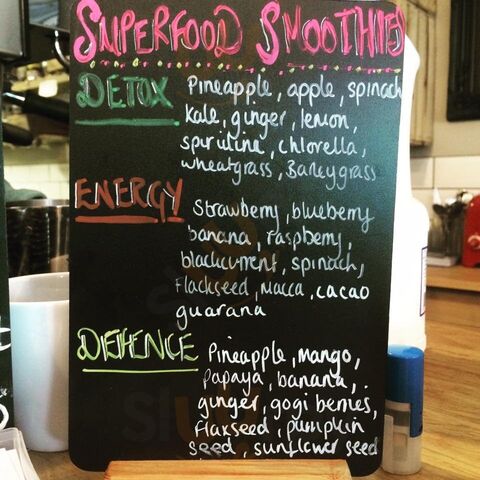 SUPERFOOD SMOOTHIES
DETOX
Pineapple, apple, spinach
kale, ginger, lemon,
spirulina, chlorella,
wheatgrass, Barleygrass
ENERGY
Strawberry, blueberry
banana, raspberry,
blackcurrent, spinach,
flackseed, Macca, cacao
guarana
DEFENCE
Pineapple, mango,
papaya, banana,
ginger, gogi berries,
flaxseed, pumpkin
seed, sunflower seed